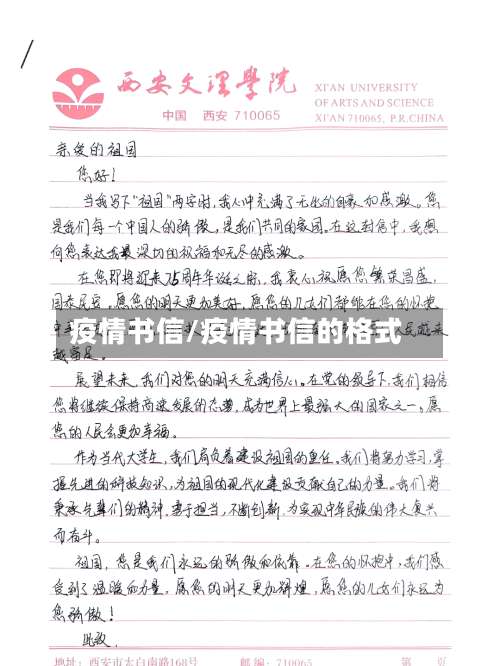 西安文理学院
XI'AN UNIVERSITY
OF ARTS AND SCIENCE
XI'AN 710065, P.R.CHINA
中国 西安 710065
亲爱的祖国
您好!
当我写下"祖国"两字时,我心中充满了无比的自豪和感激。您
是我们每一个中国人的骄傲,是我们共同的家园。在这封信中,我想
向您表达我最深切的祝福和无尽的感激。
在您即将迎来75周年华诞之际,我衷心祝愿您繁荣昌盛,
国泰民安。愿您的明天更加美好,愿您的儿女们都能在您的怀抱
疫情书信/疫情书信的格式
越富足。
展望未来,我们对您的明天充满信心。在党的领导下,我们相信
您将继续保持高速发展的态势,成为世界上最强大的国家之一。愿
您的人民会更加幸福。
作为当代大学生,我们肩负着建设祖国的重任。我们将努力学习,掌
握先进的科技知识,为祖国的现代化建设贡献自己的力量。我们将
秉承先辈们的精神,勇于担当,不断创新,为实现中华民族的伟大复兴
而奋斗。
祖国,您是我们永远的骄傲和依靠。在您的怀抱中,我们感
受到了温暖和力量,愿您的明天更加辉煌,愿您的儿女们永远为
您骄傲!
此致,
地址:西安市太白南路168号 邮编:710065 第 页